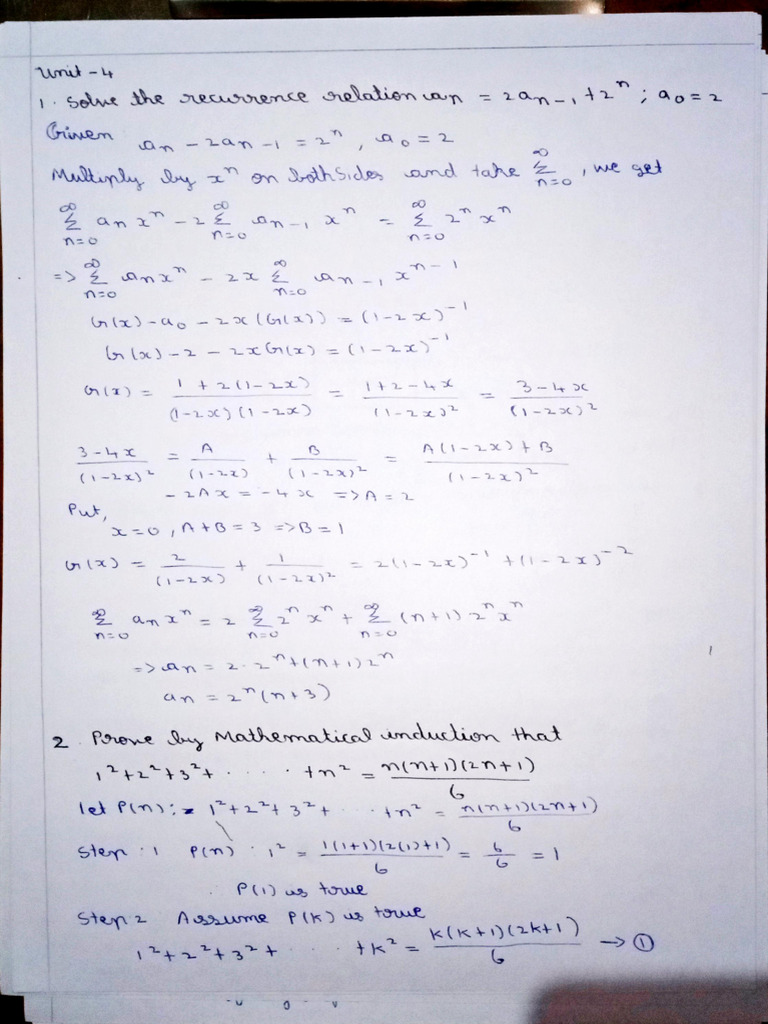 Unit - 4
1. Solve the recurrence relation an = 2an-1 + 2^n ; a0 = 2
Given an - 2an-1 = 2^n, a0 = 2
Multiply by x^n on both sides and take ∞Σn=0, we get
∞Σn=0 an x^n - 2 ∞Σn=0 an-1 x^n = ∞Σn=0 2^n x^n
=> ∞Σn=0 an x^n - 2x ∞Σn=0 an-1 x^n-1
G(x) - a0 - 2x(G(x)) = (1-2x)^-1
G(x) - 2 - 2xG(x) = (1-2x)^-1
G(x) = 1+2(1-2x) / (1-2x)(1-2x) = 1+2-4x / (1-2x)^2 = 3-4x / (1-2x)^2
3-4x / (1-2x)^2 = A / (1-2x) + B / (1-2x)^2 = A(1-2x)+B / (1-2x)^2
-2Ax = -4x => A = 2
Put,
x=0, A+B=3 => B=1
G(x) = 2 / (1-2x) + 1 / (1-2x)^2 = 2(1-2x)^-1 + (1-2x)^-2
∞Σn=0 an x^n = 2 ∞Σn=0 2^n x^n + ∞Σn=0 (n+1) 2^n x^n
=> an = 2·2^n + (n+1)2^n
an = 2^n (n+3)
2. Prove by Mathematical induction that
1^2+2^2+3^2+ . . . . +n^2 = n(n+1)(2n+1) / 6
let P(n): 1^2+2^2+3^2+ . . . +n^2 = n(n+1)(2n+1) / 6
Step : 1 P(n) : 1^2 = 1(1+1)(2(1)+1) / 6 = 6/6 = 1
P(1) is true
Step 2 Assume P(K) is true
1^2+2^2+3^2+ . . . . +K^2 = K(K+1)(2K+1) / 6 → ①